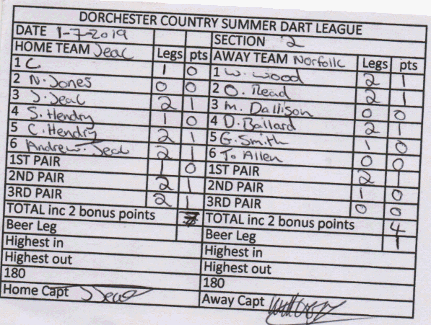 DORCHESTER COUNTRY SUMMER DART LEAGUE
DATE 1-7-2019 SECTION 2
HOME TEAM Jeac Legs pts AWAY TEAM Norfolk Legs pts
1 C 1 0 1 W. Wood 2 1
2 N. Jones 0 0 2 O. Read 2 1
3 J. Jeac 2 1 3 M. Dallison 0 0
4 S. Hendry 1 0 4 D. Ballard 2 1
5 C. Hendry 2 1 5 G. Smith 1 0
6 Andrew. Jeac 2 1 6 J. Allen 0 0
1ST PAIR 1 0 1ST PAIR 2
2ND PAIR 2 1 2ND PAIR 1 0
3RD PAIR 2 1 3RD PAIR 0 0
TOTAL inc 2 bonus points TOTAL inc 2 bonus points 4
Beer Leg Beer Leg 1
Highest in Highest in
Highest out Highest out
180 180
Home Capt J Jeac Away Capt